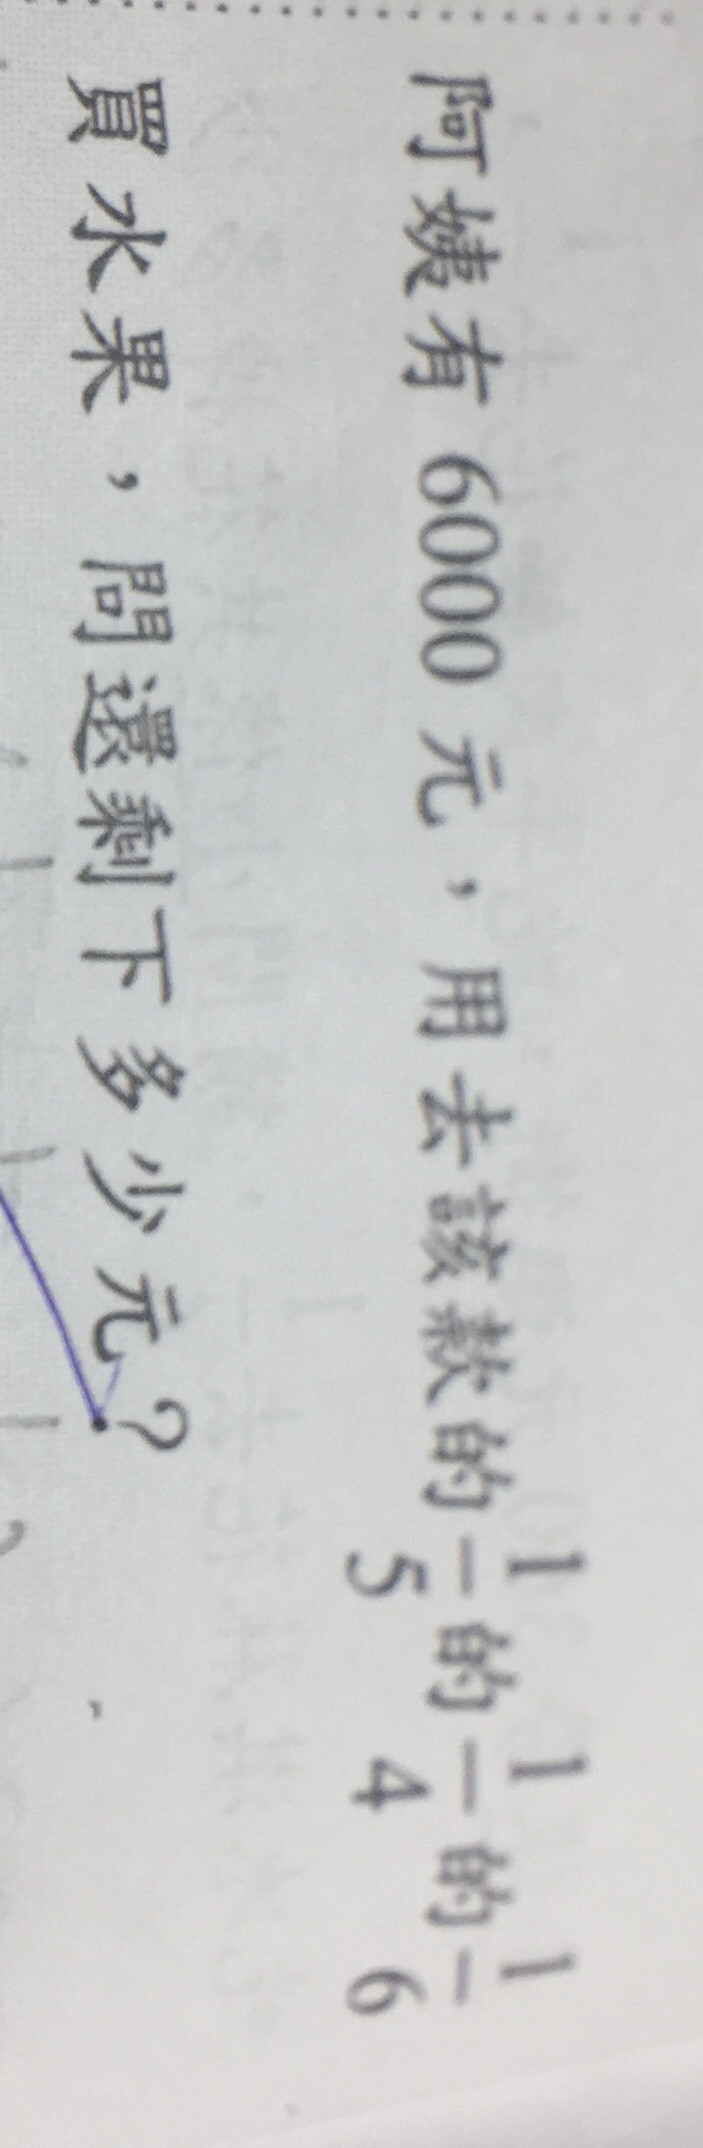 阿姨有 6000 元，用去該款的 1/5 的 1/4 的 1/6
買水果，問還剩下多少元？